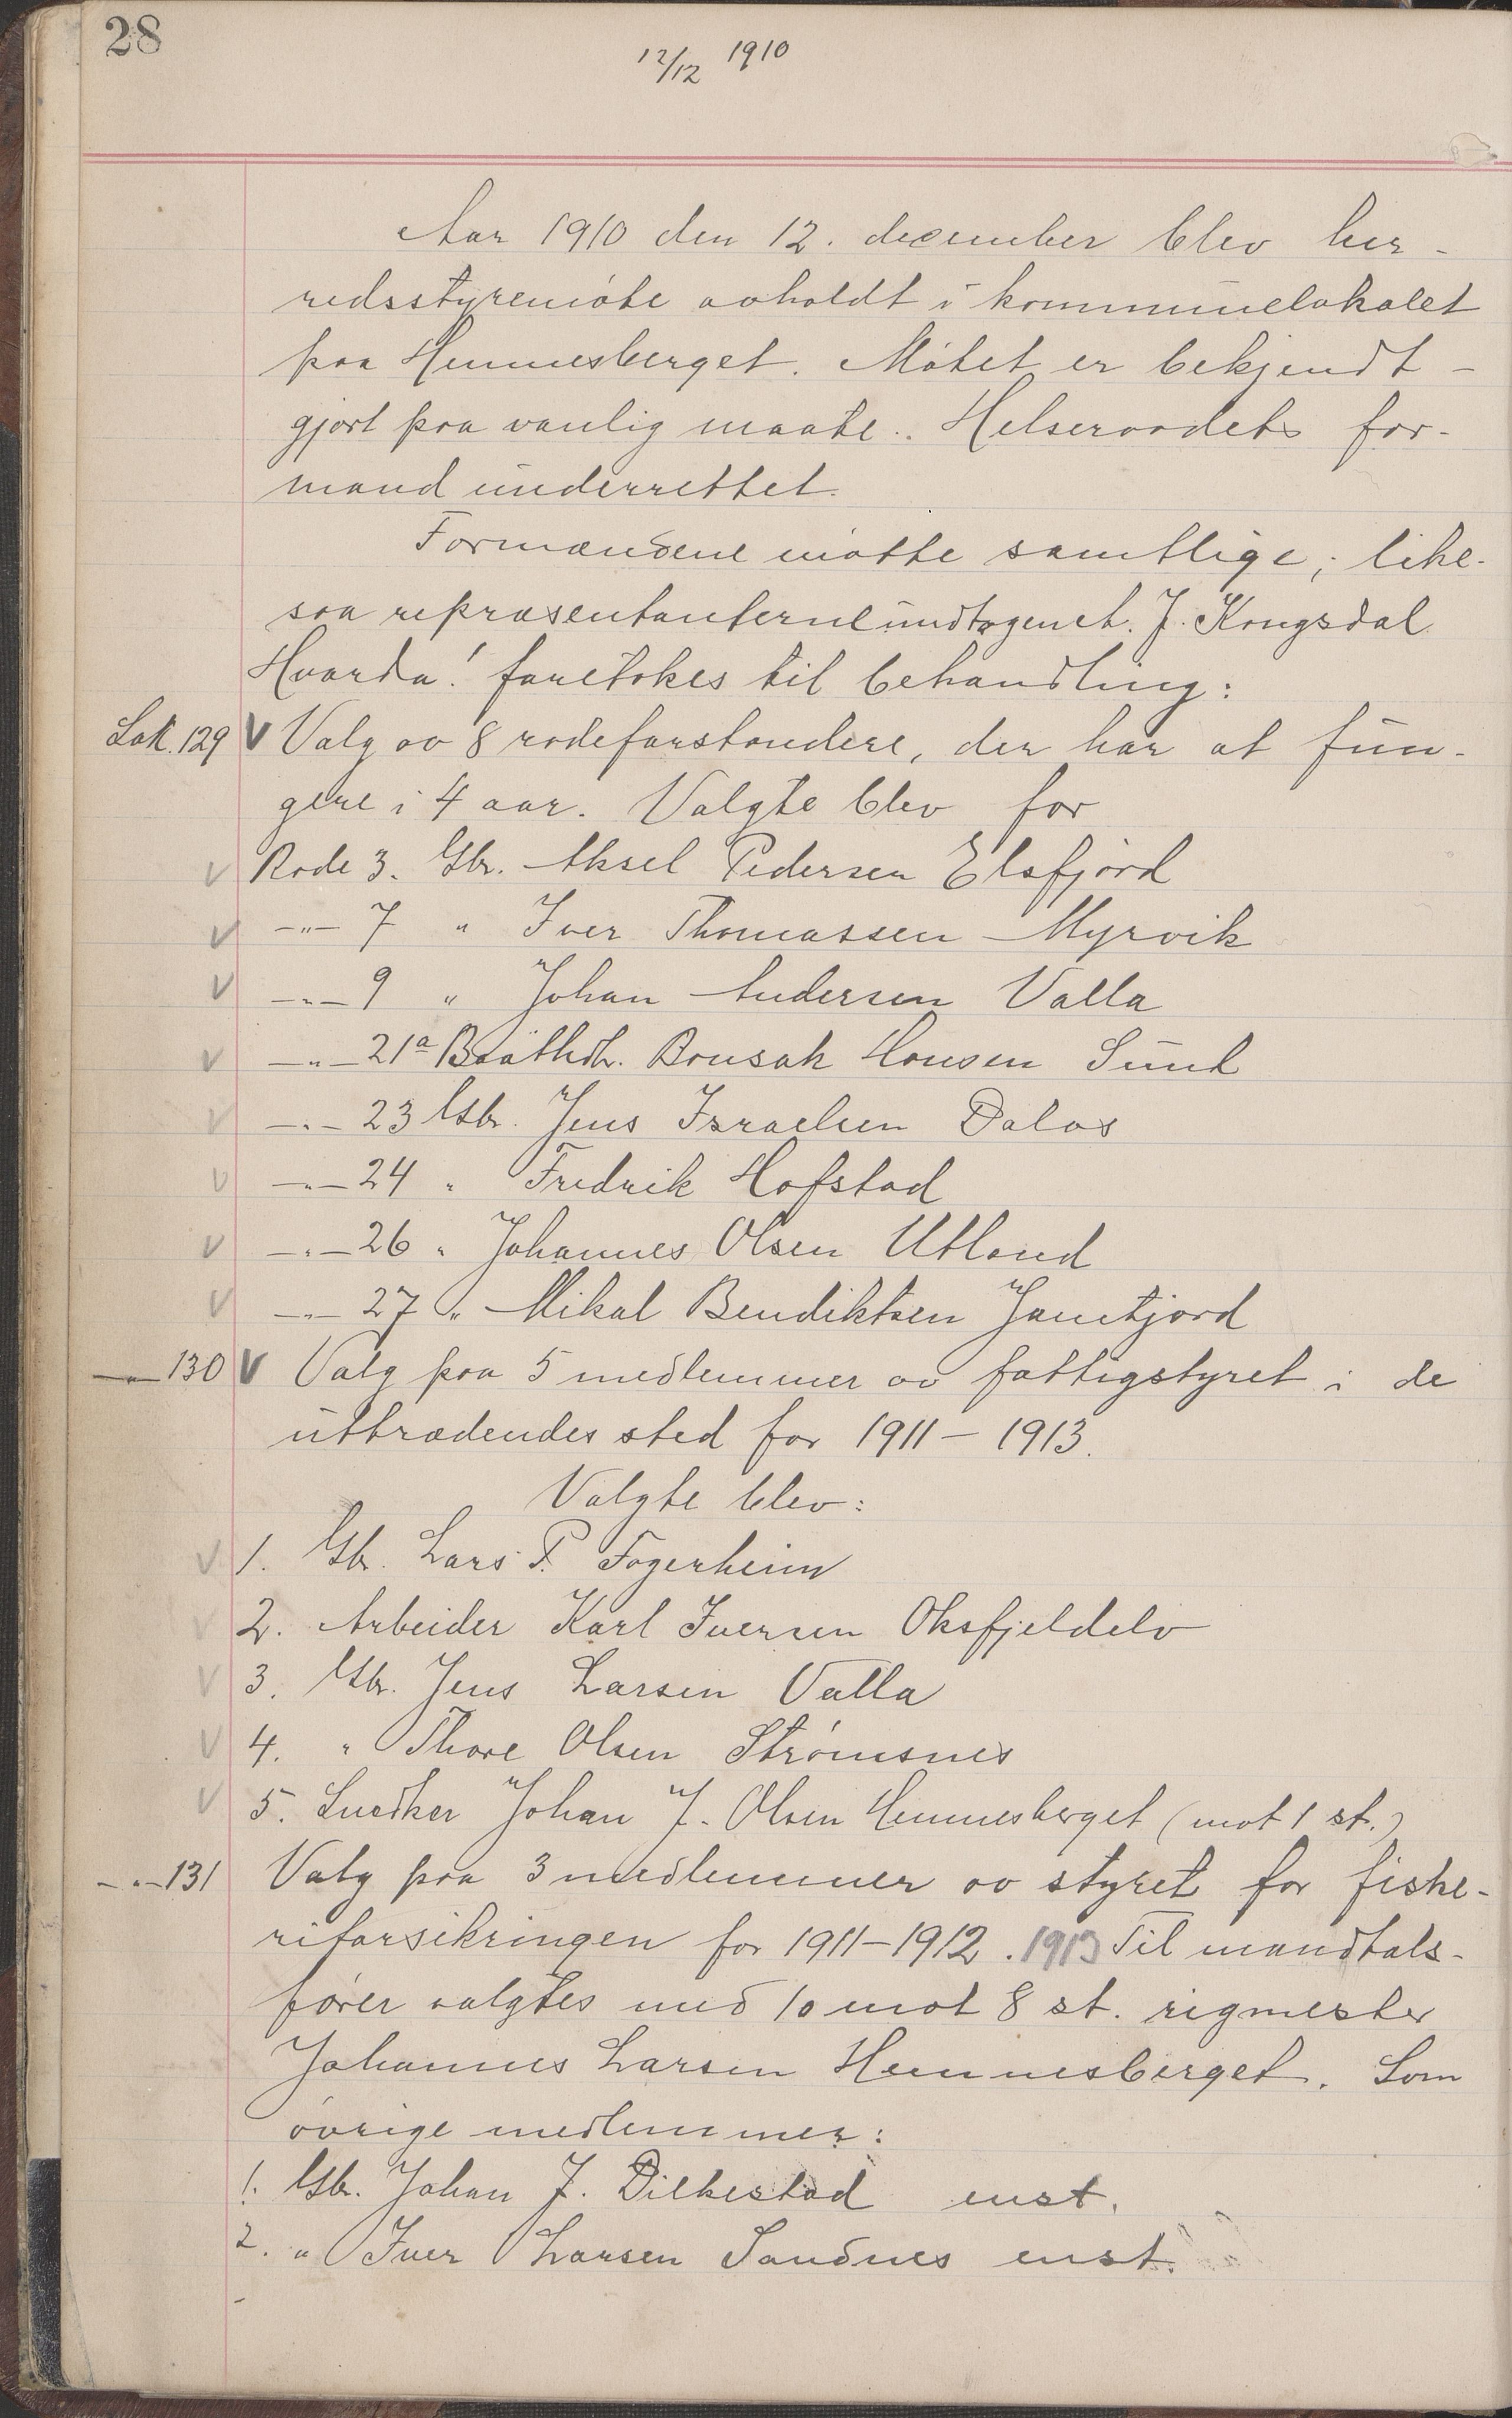 28
12/12 1910
Aar 1910 den 12. december blev her-
redsstyremöte avholdt i kommunelokalet
paa Hemnesberget. Mötet er bekjendt-
gjort paa vanlig maate. Helseraadets for-
mand underrettet.
Formændene mötte samtlige, like-
saa repræsentanterne undtagen J. Kongsdal
Hvorda! foretokes til behandling:
Sak. 129 V Valg av 8 rodeforstandere, der har at fun-
gere i 4 aar. Valgte blev for
V Rode 3. Gbr. Aksel Pedersen Elsfjord
V -"- 7 " Iver Thomassen Myrvik
V -"- 9 " Johan Andersen Valla
V -"- 21a Hansen Sund
V -"- 23 Gbr. Jens Israelsen Dalos
V -"- 24 " Fredrik Hofstad
V -"- 26 " Johannes Olsen Utland
V -"- 27 " Mikal Bendiktsen Jamtjord
-"- 130 V Valg paa 5 medlemmer av fattigstyret i de
uttrædendes sted for 1911 - 1913.
Valgte blev:
V 1. Gbr. Lars P. Fagerheim
V 2. Arbeider Karl Iversen Oksfjeldelv
V 3. Gbr. Jens Larsen Valla
V 4. " Thore Olsen Strömsnes
V 5. Snedker Johan J. Olsen Hemnesberget (mot 1 st.)
-"- 131 Valg paa 3 medlemmer av styret for fiske-
riforsikringen for 1911-1912. 1913 Til mandtals-
förer valgtes med 10 mot 8 st. rigmester
Johannes Larsen Hemnesberget. Som
övrige medlemmer:
1. Gbr. Johan J. Dilkestad enst.
2. " Iver Larsen Sandnes enst.